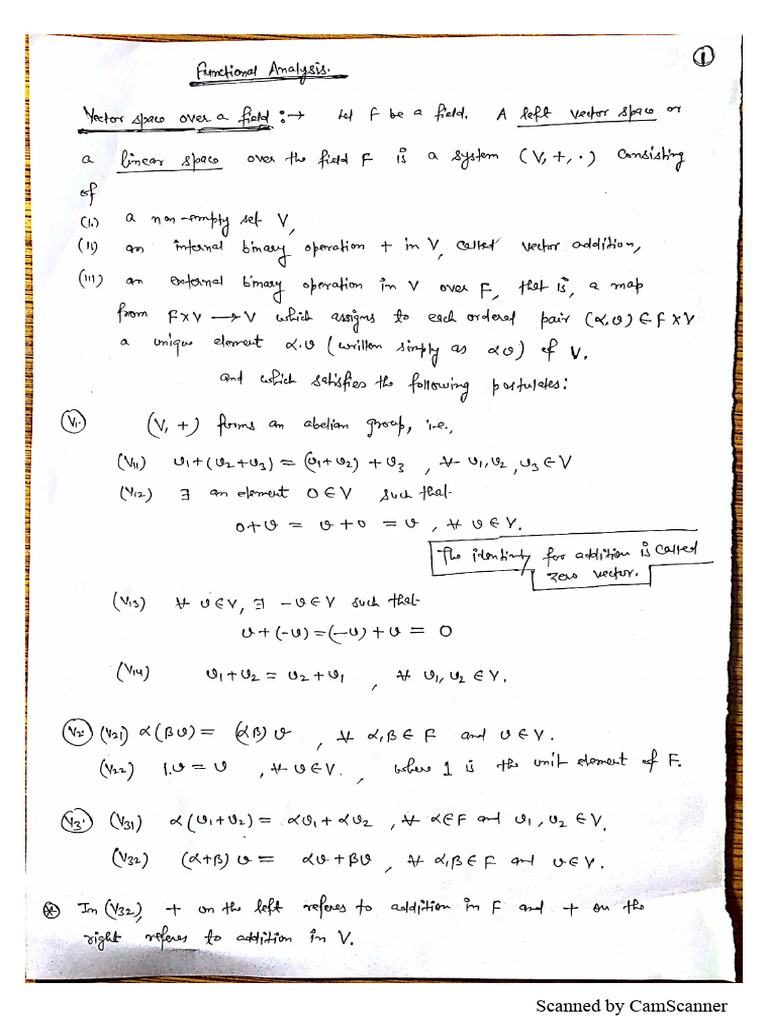 Functional Analysis.
①
Vector space over a field :→ Let F be a field. A left vector space or
a linear space over the field F is a system (V, +, ·) consisting
of
(i.) a non-empty set V,
(ii) an internal binary operation + in V, called vector addition,
(iii) an external binary operation in V over F, that is, a map
from F×V → V which assigns to each ordered pair (α,υ) ∈ F×V
a unique element α.υ (written simply as αυ) of V.
and which satisfies the following postulates:
V1. (V, +) forms an abelian group, i.e.,
(V11) υ1+(υ2+υ3) = (υ1+υ2)+υ3 , ∀ υ1,υ2,υ3 ∈ V
(V12) ∃ an element 0∈V such that
0+υ = υ+0 = υ , ∀ υ∈V.
The identity for addition is called
zero vector.
(V13) ∀ υ∈V, ∃ -υ∈V such that
υ+(-υ)=(-υ)+υ = 0
(V14) υ1+υ2 = υ2+υ1 , ∀ υ1,υ2 ∈ V.
V2. (V21) α(βυ) = (αβ)υ , ∀ α,β∈ F and υ∈V.
(V22) 1.υ = υ , ∀ υ∈V. , where 1 is the unit element of F.
V3. (V31) α(υ1+υ2) = αυ1+αυ2 , ∀ α∈F and υ1,υ2 ∈ V.
(V32) (α+β)υ = αυ+βυ , ∀ α,β∈F and υ∈V.
⊛ In (V32), + on the left referes to addition in F and + on the
right referes to addition in V.
Scanned by CamScanner